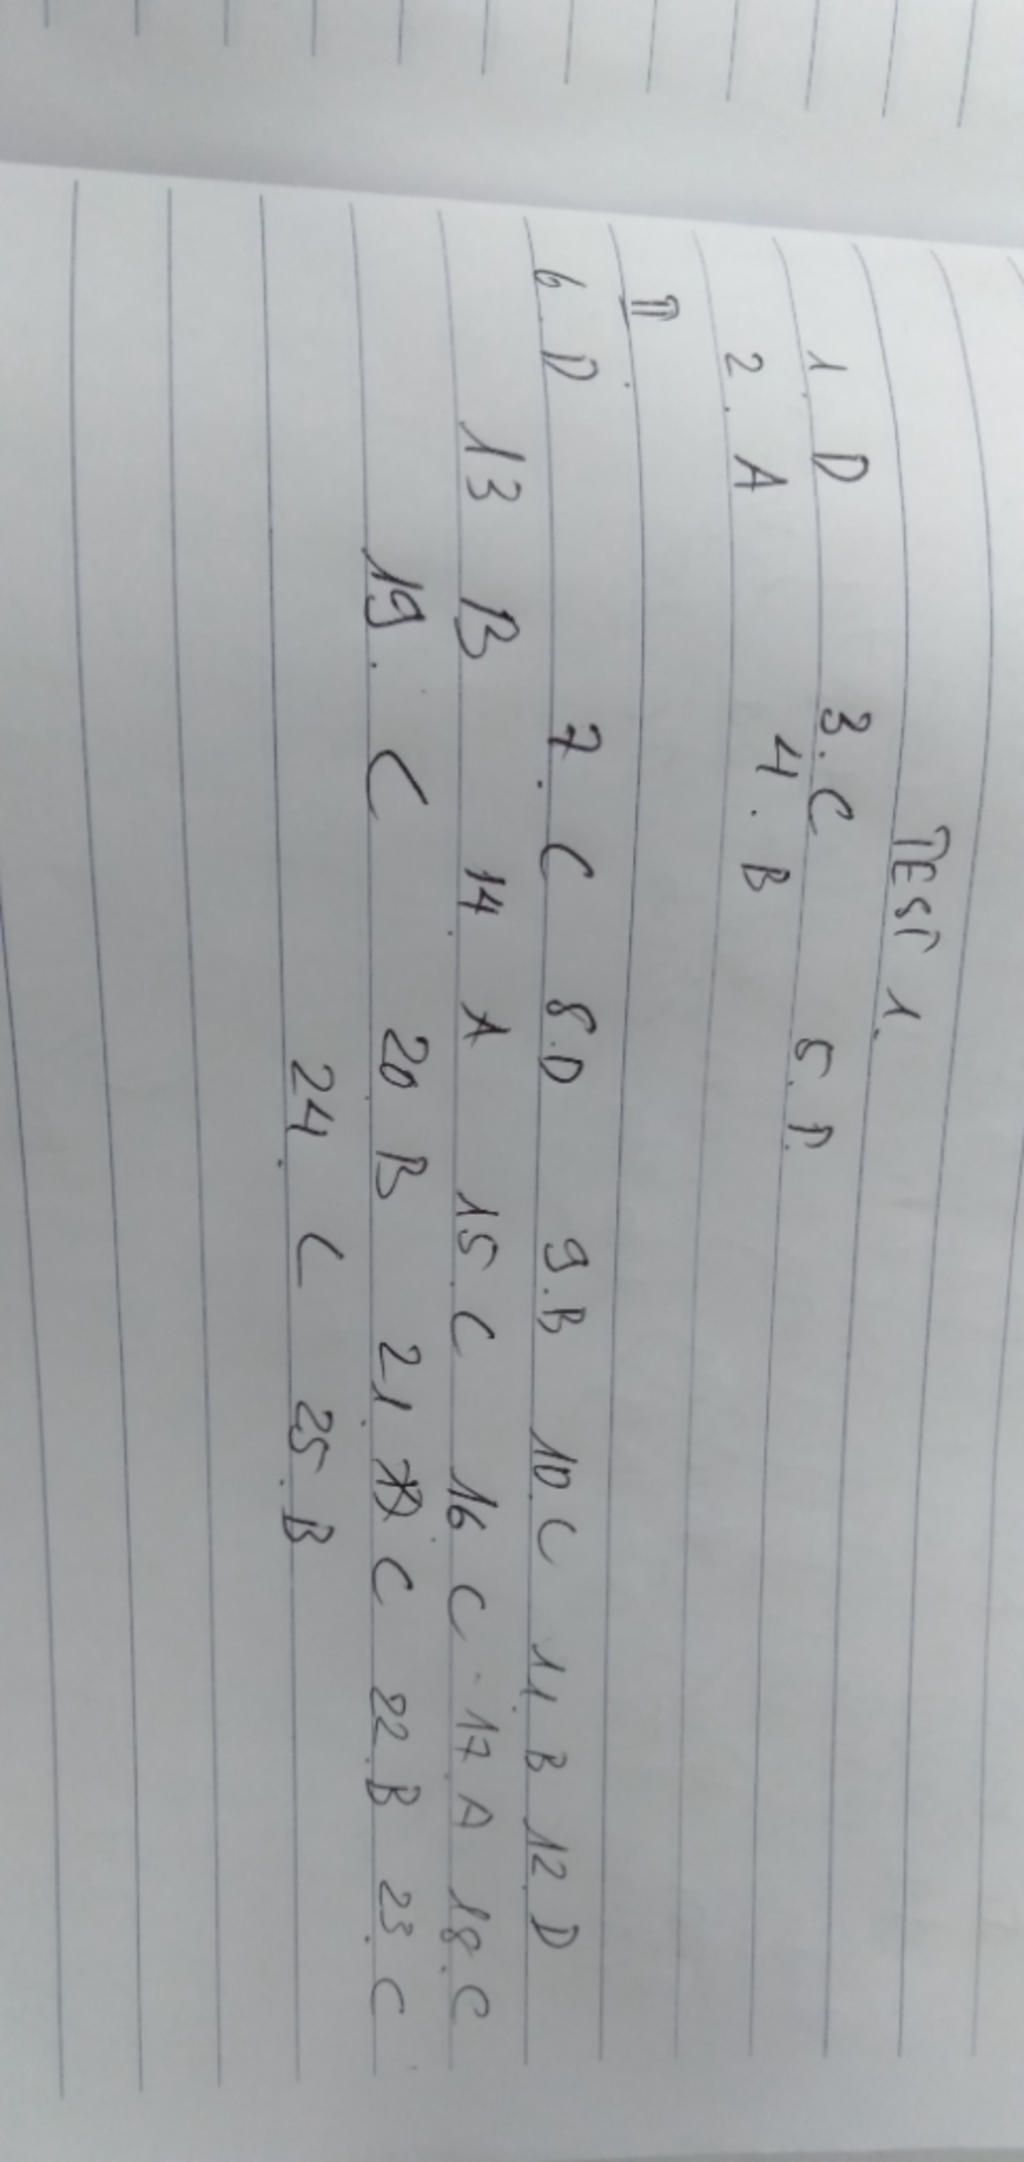 TEST 1.
1. D 3. C 5. D
2. A 4. B
II
6. D 7. C 8. D 9. B 10. C 11. B 12. D
13 B 14. A 15. C 16 C - 17. A 18. C
19. C 20 B 21. C 22. B 23. C
24. C 25. B